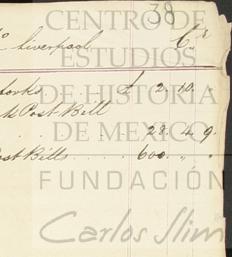 38
Liverpool Cr
£ 2. 10. -
Post Bill
28. 4. 9.
Post Bills 600. " -
CENTRO DE
ESTUDIOS
DE HISTORIA
DE MÉXICO
FUNDACIÓN
Carlos Slim